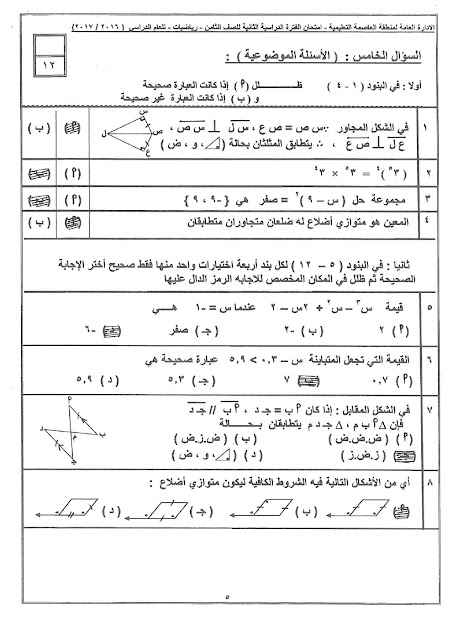 الادارة العامة لمنطقة العاصمة التعليمية - امتحان الفترة الدراسية الثانية للصف الثامن - رياضيات - للعام الدراسي ( ٢٠١٦ / ٢٠١٧ )
السؤال الخامس : ( الأسئلة الموضوعية ) :
١٢
أولا : في البنود ( ١ - ٤ ) ظـلـل (٢) إذا كانت العبارة صحيحة
و ( ب ) إذا كانت العبارة غير صحيحة
١ في الشكل المجاور ∵ س ص = ص ع ، س ل ⊥ س ص ،
ع ل ⊥ ص ع ، ∴ يتطابق المثلثان بحالة ( ، و ، ض ) (ب)
س ص ع ل
٢ (٣٥)٤ = ٣٥ × ٣٤ (٢)
٣ مجموعة حل ( س – ٩ )٢ = صفر هي { -٩ ، ٩ } (٢)
٤ المعين هو متوازي أضلاع له ضلعان متجاوران متطابقان (ب)
ثانيا : في البنود ( ٥ - ١٢ ) لكل بند أربعة اختيارات واحد منها فقط صحيح أختر الإجابة
الصحيحة ثم ظلل في المكان المخصص للاجابه الرمز الدال عليها
٥ قيمة س٣ – س٢ ÷ ٢س – ٢ عندما س = -١ هـــي
(٢) ٢ (ب) -٢ (جـ) صفر -٦
٦ القيمة التي تجعل المتباينة س – ٠,٣ > ٥,٩ عبارة صحيحة هي
(٢) ٠,٧ ٧ (جـ) ٥,٣ (د) ٥,٩
٧ في الشكل المقابل : إذا كان ٢ ب = جـ د ، ٢ ب // جـ د
فإن Δ ٢ ب م ، Δ جـ د م يتطابقان بـحـــالة
(٢) (ض.ض.ض) (ب) (ض.ز.ض)
(ز.ض.ز) (د) ( ، و ، ض)
٨ أي من الأشكال التالية فيه الشروط الكافية ليكون متوازي أضلاع :
(ب) (جـ) (د)
٥